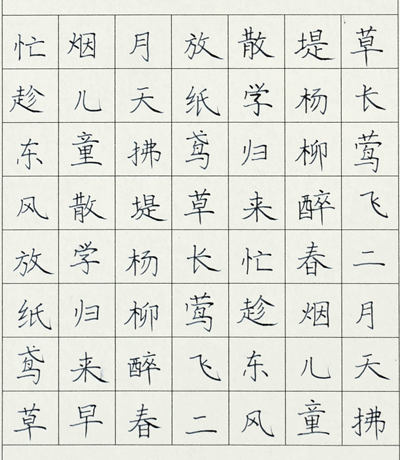 草长莺飞二月天拂
堤杨柳醉春烟儿童
散学归来忙趁东风
放纸鸢草长莺飞二
月天拂堤杨柳醉春
烟儿童散学归来早
忙趁东风放纸鸢草